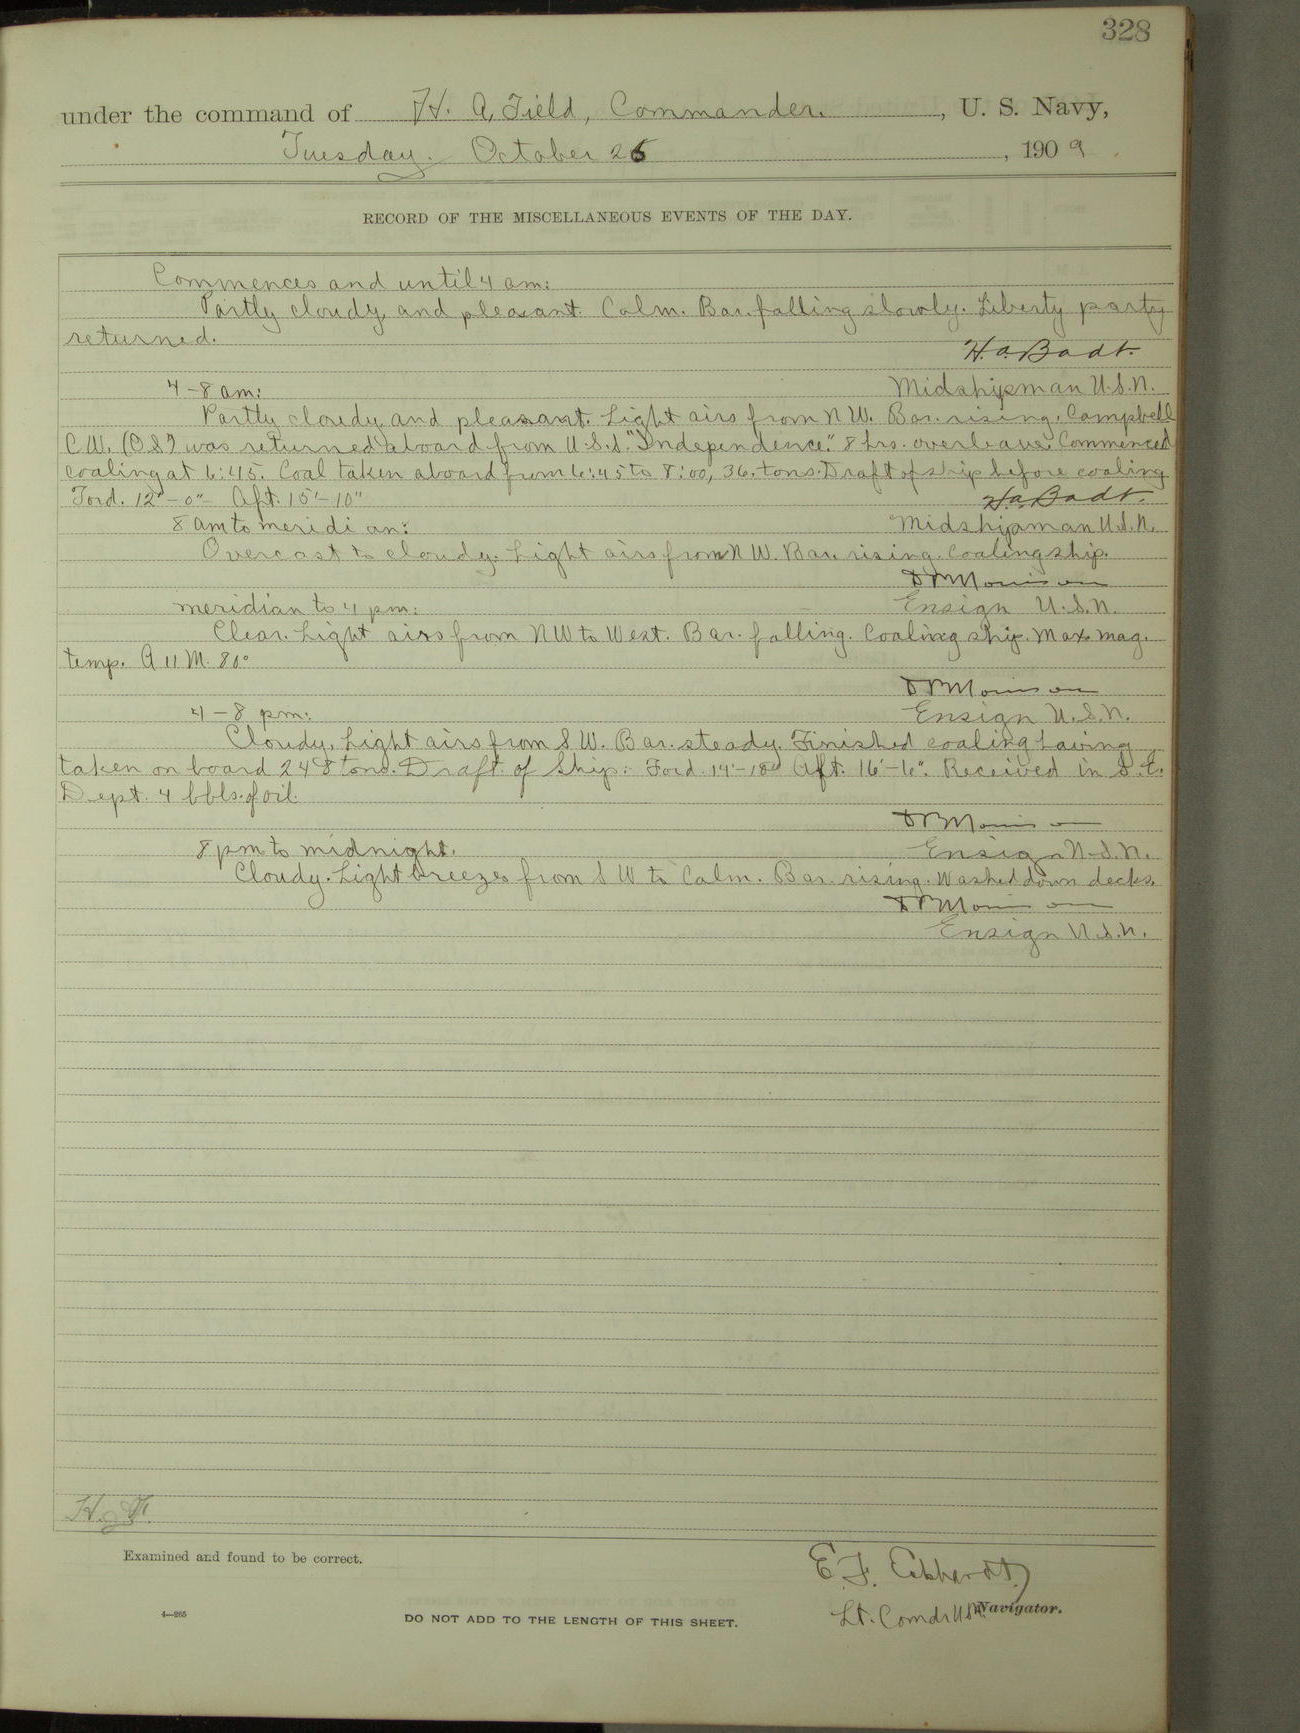 328
under the command of H. A. Field, Commander. , U. S. Navy,
Tuesday. October 26 , 1909.
RECORD OF THE MISCELLANEOUS EVENTS OF THE DAY.
Commences and until 4 am:
Partly cloudy and pleasant. Calm. Bar. falling slowly. Liberty party
returned.
H. A. Badt.
4-8 am:
Midshipman U.S.N.
Partly cloudy and pleasant. Light airs from NW. Bar. rising. Campbell
C.W. (O.S.) was returned aboard from U.S.S. "Independence". 8 hrs. overleave. Commenced
coaling at 6:45. Coal taken aboard from 6:45 to 8:00, 36. tons. Draft of ship before coaling
Ford. 12'-0" Aft. 15'-10"
H. A. Badt.
8 am to meridian:
Midshipman U.S.N.
Overcast to cloudy. Light airs from NW. Bar. rising. Coaling ship.
Ensign U.S.N.
meridian to 4 pm:
Clear. Light airs from NW to West. Bar. falling. Coaling ship. Max. mag.
temp. A 11 M. 80°
4-8 pm:
Ensign U.S.N.
Cloudy. Light airs from SW. Bar. steady. Finished coaling having
taken on board 248 tons. Draft of Ship: Ford. 14'-10" Aft. 16'-6". Received in S.E.
Dept. 4 bbls. of oil.
8 pm to midnight.
Ensign U.S.N.
Cloudy. Light breezes from SW to Calm. Bar. rising. Washed down decks.
Ensign U.S.N.
Examined and found to be correct.
E. F. Eckhardt,
Lt. Comdr U.S.N. Navigator.
4—265
DO NOT ADD TO THE LENGTH OF THIS SHEET.